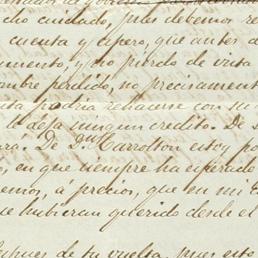 cho cuidado, pues debemos re
cuenta y apero, que antes d
umento, y no puedo de vista
mbre perdido, no precisament
podria rehacerse con su
de la ningun credito. De
rá. De Dn Carrolton estoy po
o, en que siempre ha esperado
emos, á precios, que en mi
ue hubieran querido desde el
espues de tu vuelta, pues esto